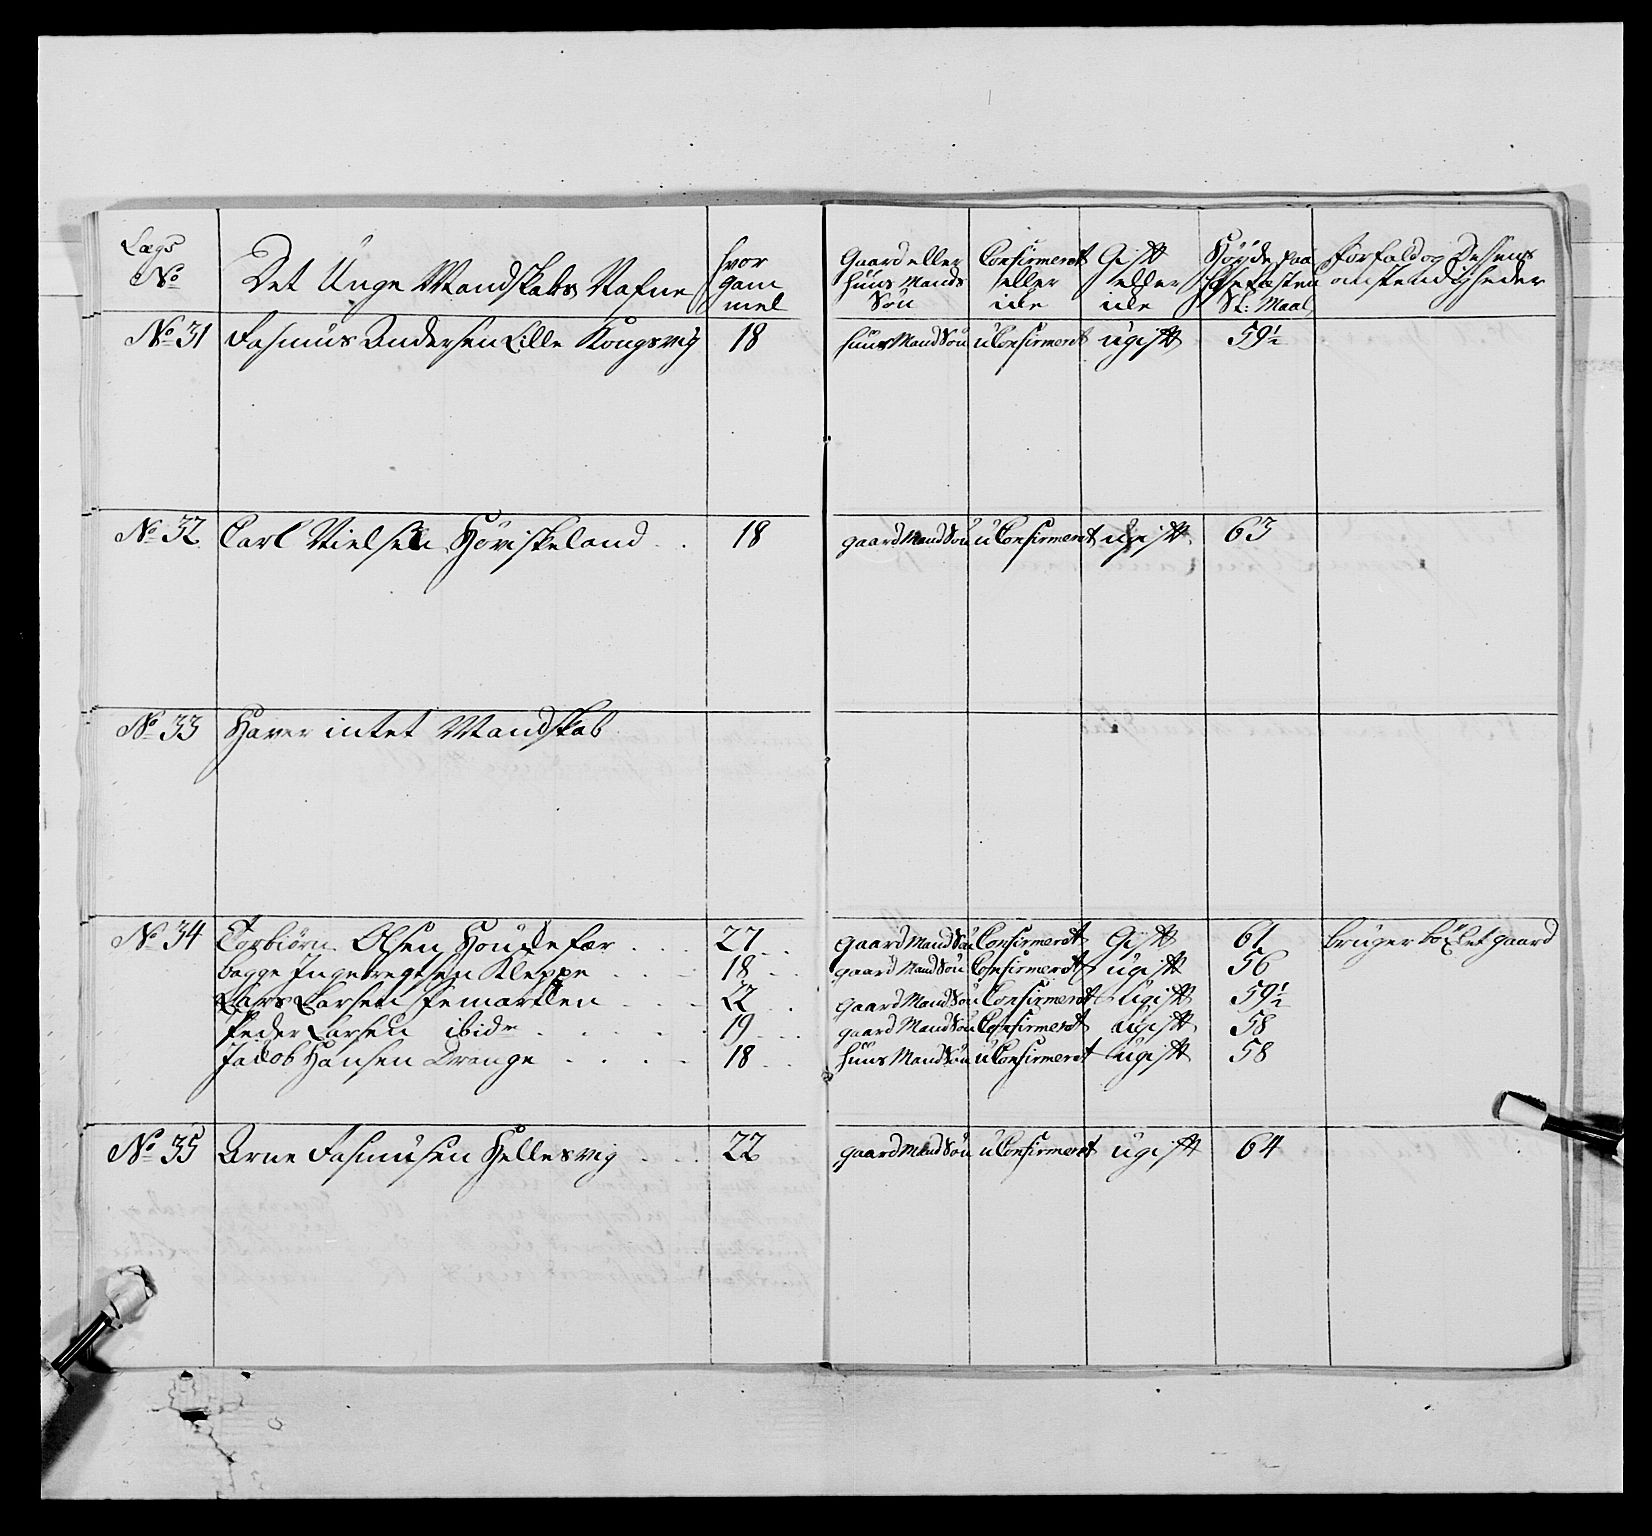 Lægs No | Det Unge Mandskabs Nafne | hvor gam mel | Gaard eller huus Mands Søn | Confirmeret eller icke | Gift eller icke | Høyde paa Hosefosten St: Maal | Forfald og Dessens omstendigheder
No 31 | Rasmus Andersen Lille Kongsvig | 18 | huus Mand Søn | u Confirmeret | ugift | 59½
No 32 | Carl Nielsen Høviskeland | 18 | gaard Mand Søn | u Confirmeret | ugift | 63
No 33 | Haver intet Mandskab
No 34 | Torbiørn Olsen | 27 | gaard Mand Søn | Confirmeret | Gift | 61 | bruger bøxlet gaard
Bagge Ingebregtsen Kleppe | 18 | gaard Mand Søn | Confirmeret | ugift | 56
Lars Larsen | 22 | gaard Mand Søn | Confirmeret | Ugift | 59½
Peder Larsen ibidm | 19 | gaard Mand Søn | Confirmeret | ugift | 58
Jacob Hansen Drange | 18 | huus Mand Søn | u Confirmeret | ugift | 58
No 35 | Arne Rasmusen Hellesvig | 22 | gaard Mand Søn | u Confirmeret | ugift | 64